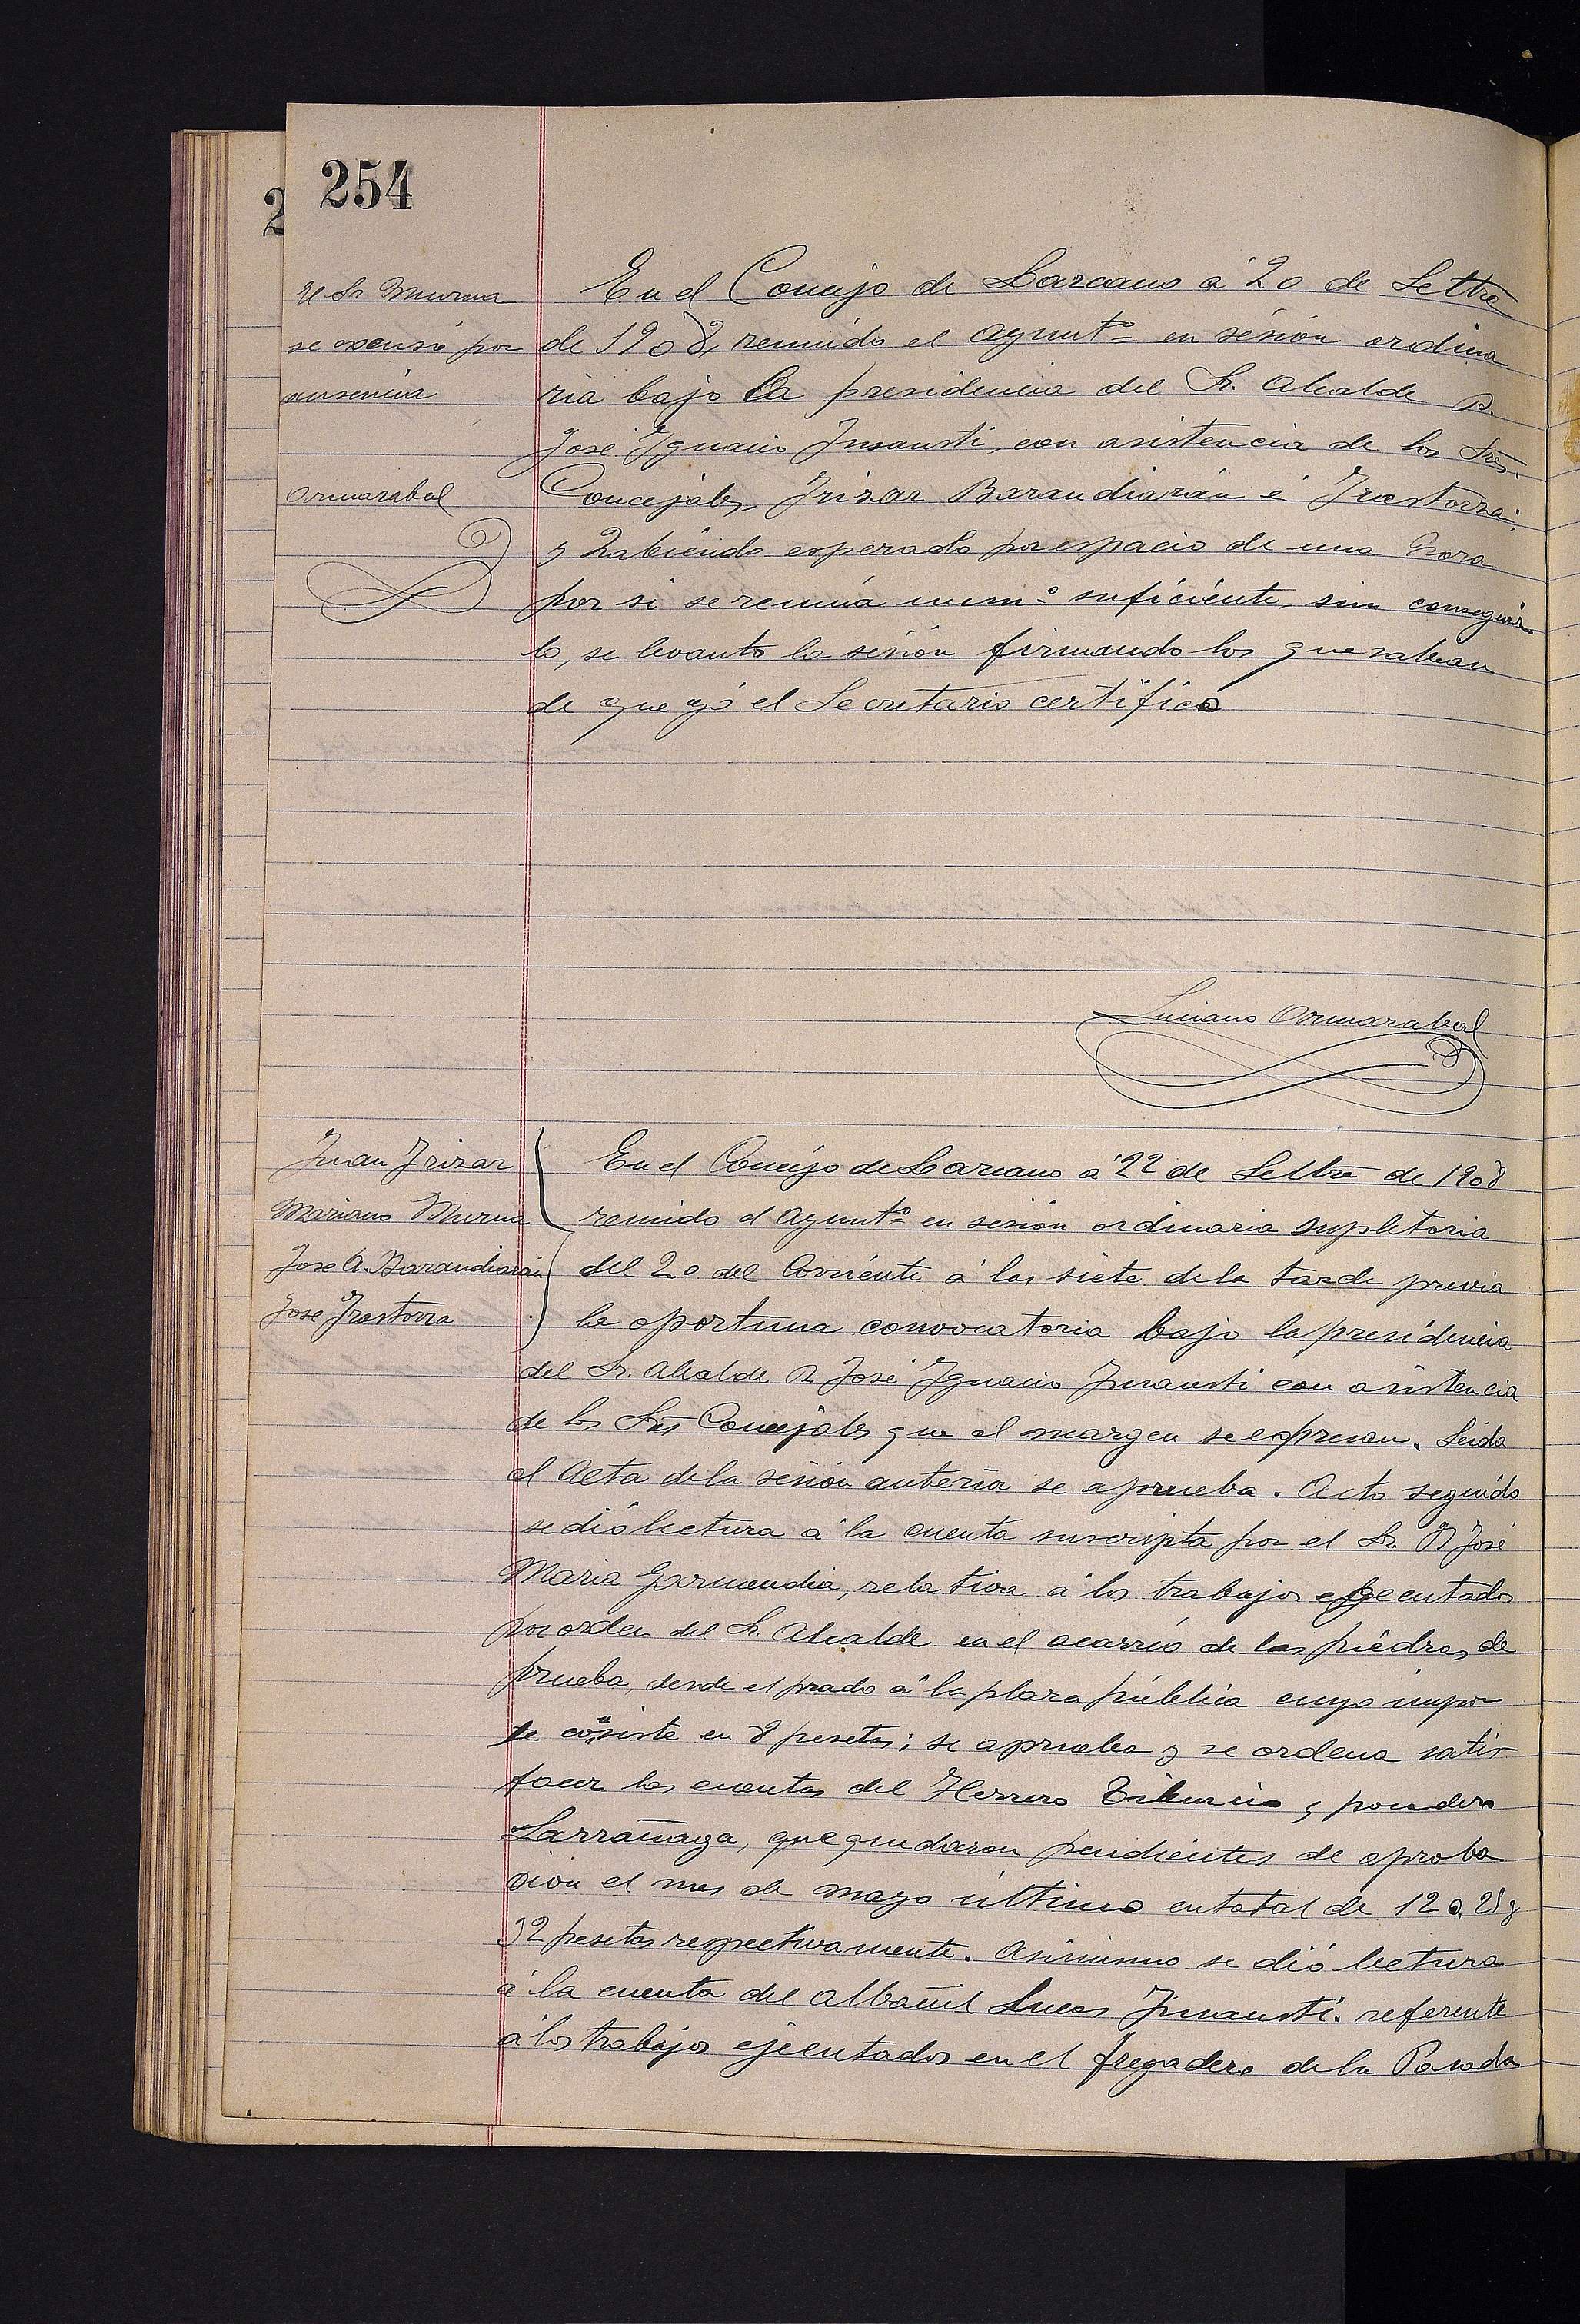 254
El Sr. Murua
se excusó por
ausencia
Ormazabal
En el Concejo de Lazcano á 20 de Setbre
de 1908, reunido el Ayuntº en sesión ordina
ria bajo la presidencia del Sr. Alcalde D.
José Ignacio Insausti, con asistencia de los Sres.
Concejales, Irizar Barandiarán é Irastorza;
y habiendo esperado por espacio de una hora
por si se reunía numº suficiente, sin conseguir
lo, se levantó la sesión firmando los que saben
de que yó el Secretario certifico
Luciano Ormazabal
Juan Irizar
Mariano Murua
Jose A. Barandiarán
Jose Irastorza
En el Concejo de Lazcano á 22 de Setbre de 1908
reunido el Ayuntº en sesión ordinaria supletoria
del 20 del Corriente á las siete de la tarde previa
la oportuna convocatoria bajo la presidencia
del Sr. Alcalde D José Ignacio Insausti con asistencia
de los Sres Concejales que al margen se expresan. Leida
el Acta de la sesión anterior se aprueba. Acto seguido
se dió lectura á la cuenta suscripta por el Sr. D José
Maria Garmendia, relativa á los trabajos ejecutados
por orden del Sr. Alcalde en el acarreo de las piedras de
prueba, desde el prado á la plaza pública cuyo impor
te consiste en 8 pesetas; se aprueba y se ordena satis
facer las cuentas del Herrero Tiburcio y posadero
Larrañaga, que quedaron pendientes de aproba
cion el mes de mayo último en total de 120.25 y
32 pesetas respectivamente. Asimismo se dió lectura
á la cuenta del albañil Lucas Insausti. referente
á los trabajos ejecutados en el fregadero de la Posada